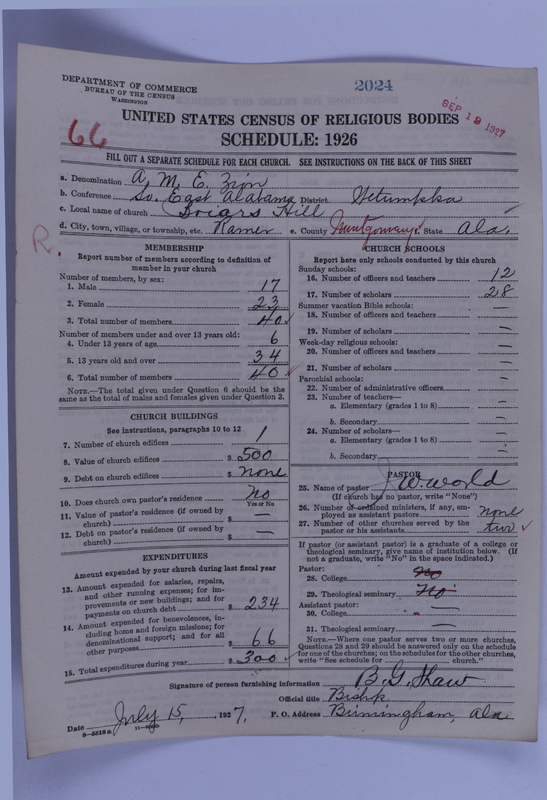 DEPARTMENT OF COMMERCE
BUREAU OF THE CENSUS
WASHINGTON
2024
SEP 19 1927
UNITED STATES CENSUS OF RELIGIOUS BODIES
66
SCHEDULE: 1926
FILL OUT A SEPARATE SCHEDULE FOR EACH CHURCH. SEE INSTRUCTIONS ON THE BACK OF THIS SHEET
a. Denomination A. M. E. Zion
b. Conference So. East Alabama District Wetumpka
c. Local name of church Briars Hill
d. City, town, village, or township, etc. Ramer e. County Montgomery State Ala.
R.
MEMBERSHIP
Report number of members according to definition of
member in your church
Number of members, by sex:
1. Male 17
2. Female 23
3. Total number of members 40
Number of members under and over 13 years old:
4. Under 13 years of age 6
5. 13 years old and over 34
6. Total number of members 40
NOTE.—The total given under Question 6 should be the
same as the total of males and females given under Question 3.
CHURCH BUILDINGS
See instructions, paragraphs 10 to 12
7. Number of church edifices 1
8. Value of church edifices $ 500
9. Debt on church edifices $ none
10. Does church own pastor's residence No
Yes or No
11. Value of pastor's residence (if owned by
church) $ —
12. Debt on pastor's residence (if owned by
church) $ —
EXPENDITURES
Amount expended by your church during last fiscal year
13. Amount expended for salaries, repairs,
and other running expenses; for im-
provements or new buildings; and for
payments on church debt $ 234
14. Amount expended for benevolences, in-
cluding home and foreign missions; for
denominational support; and for all
other purposes $ 66
15. Total expenditures during year $ 300
CHURCH SCHOOLS
Report here only schools conducted by this church
Sunday schools:
16. Number of officers and teachers 12
17. Number of scholars 28
Summer vacation Bible schools:
18. Number of officers and teachers —
19. Number of scholars —
Week-day religious schools:
20. Number of officers and teachers —
21. Number of scholars —
Parochial schools:
22. Number of administrative officers —
23. Number of teachers—
a. Elementary (grades 1 to 8) —
b. Secondary —
24. Number of scholars—
a. Elementary (grades 1 to 8) —
b. Secondary —
PASTOR
25. Name of pastor J. W. World
(If church has no pastor, write "None")
26. Number of ordained ministers, if any, em-
ployed as assistant pastors none
27. Number of other churches served by the
pastor or his assistants two
If pastor (or assistant pastor) is a graduate of a college or
theological seminary, give name of institution below. (If
not a graduate, write "No" in the space indicated.)
Pastor:
28. College No
29. Theological seminary No
Assistant pastor:
30. College —
31. Theological seminary —
NOTE.—Where one pastor serves two or more churches,
Questions 28 and 29 should be answered only on the schedule
for one of the churches; on the schedules for the other churches,
write "See schedule for church."
Signature of person furnishing information B. G. Shaw
Official title Bishp
Date July 15, 1927. P. O. Address Birmingham, Ala